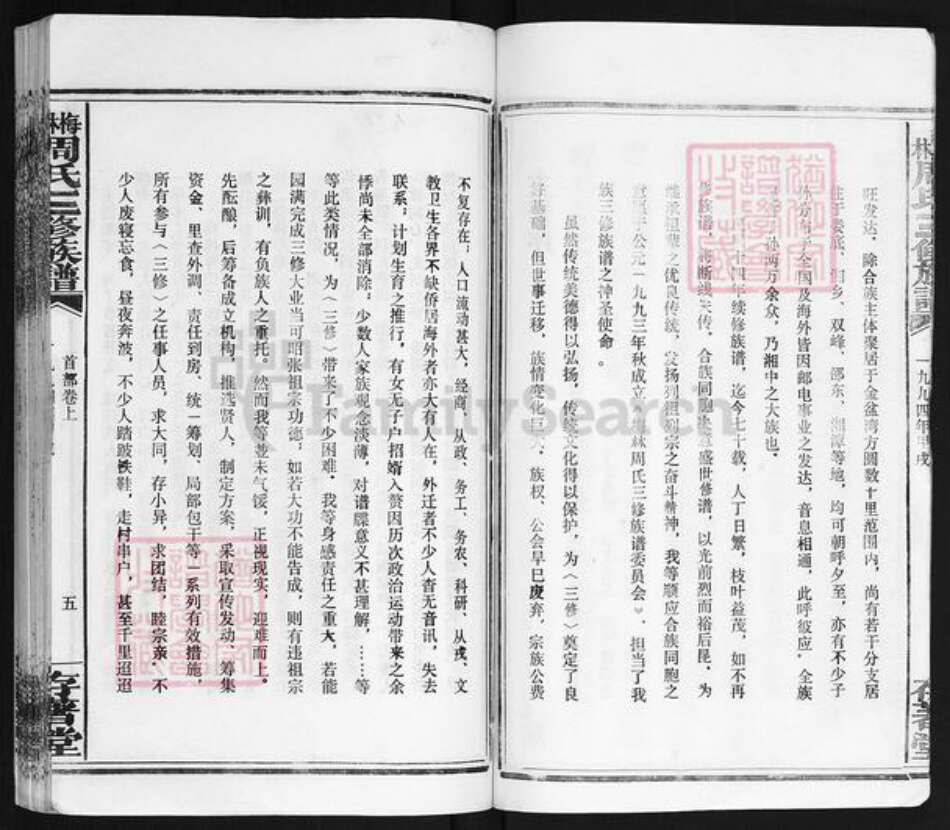 梅林周氏三修族谱
一九九四年甲戌
存著堂
旺发达，除合族主体聚居于金盆湾方圆数十里范围内，尚有若干分支居
双峰、邵东、湘潭等地，均可朝呼夕至，亦有不少子
全国及海外皆因邮电事业之发达，音息相通，此呼彼应。全族
孙两万余众，乃湘中之大族也。
四年续修族谱，迄今七十载，人丁日繁，枝叶益茂，如不再
族谱，将断线失传，合族同胞决意盛世修谱，以光前烈而裕后昆。为
之优良传统，发扬列祖列宗之奋斗精神，我等顺应合族同胞之
于公元一九九三年秋成立梅林周氏三修族谱委员会》，担当了我
族三修族谱之神圣使命。
虽然传统美德得以弘扬，传统文化得以保护，为〈三修〉奠定了良
好基础，但世事迁移，族情变化巨大，族权、公会早巳废弃，宗族公费
不复存在；人口流动甚大，经商、从政、务工、务农、科研、从戎、文
教卫生各界不缺侨居海外者亦大有人在，外迁者不少人杳无音讯，失去
联系；计划生育之推行，有女无子户招婿入赘因历次政治运动带来之余
悸尚未全部消除；少数人家族观念淡薄，对谱牒意义不甚理解，……等
等此类情况，为〈三修〉带来了不少困难。我等身感责任之重大，若能
园满完成三修大业当可昭张祖宗功德，如若大功不能告成，则有违祖宗
之彝训，有负族人之重托。然而我等并未气馁，正视现实，迎难而上。
先酝酿，后筹备成立机构，推选贤人，制定方案，采取宣传发动、筹集
资金、里查外调、责任到房、统一筹划、局部包干等一系列有效措施，
所有参与〈三修〉之任事人员，求大同，存小异，求团结，睦宗亲，不
少人废寝忘食，昼夜奔波，不少人踏跛铁鞋，走村串户，甚至千里迢迢
梅林周氏三修族谱
首部卷上
五
存著堂
FamilySearch